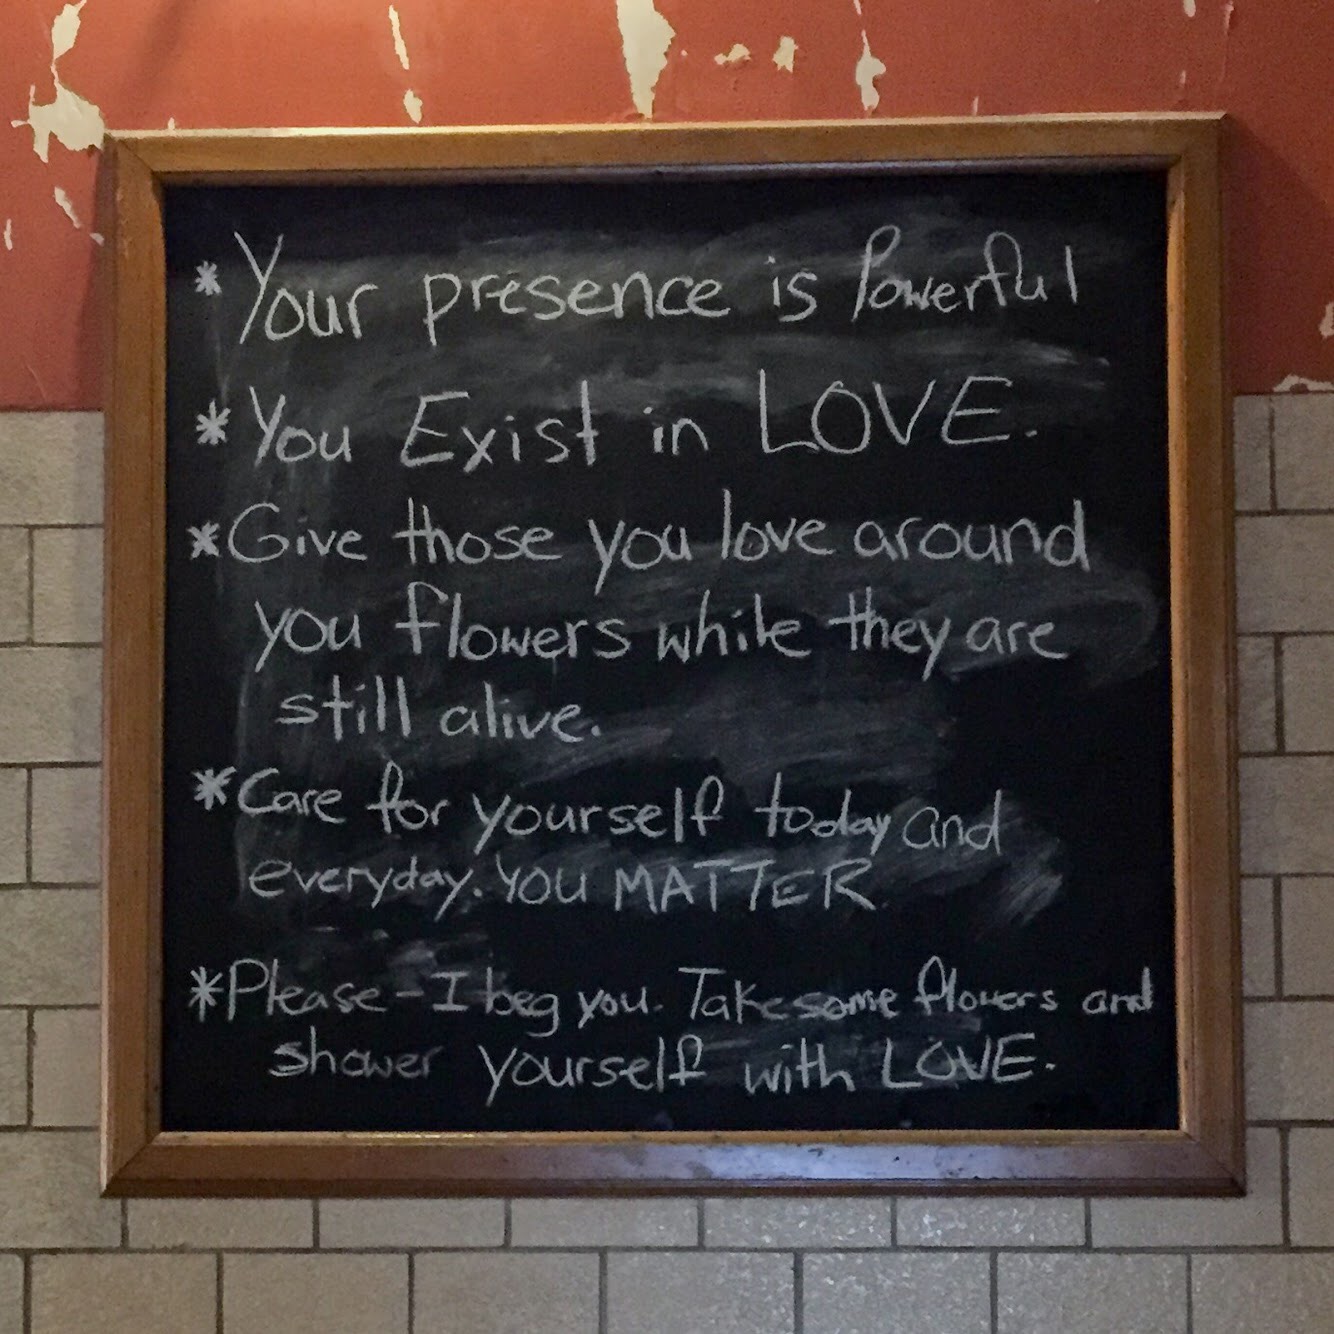 * Your presence is Powerful
* You Exist in LOVE.
* Give those you love around
you flowers while they are
still alive.
* Care for yourself today and
everyday. YOU MATTER
* Please - I beg you. Take some flowers and
shower yourself with LOVE.